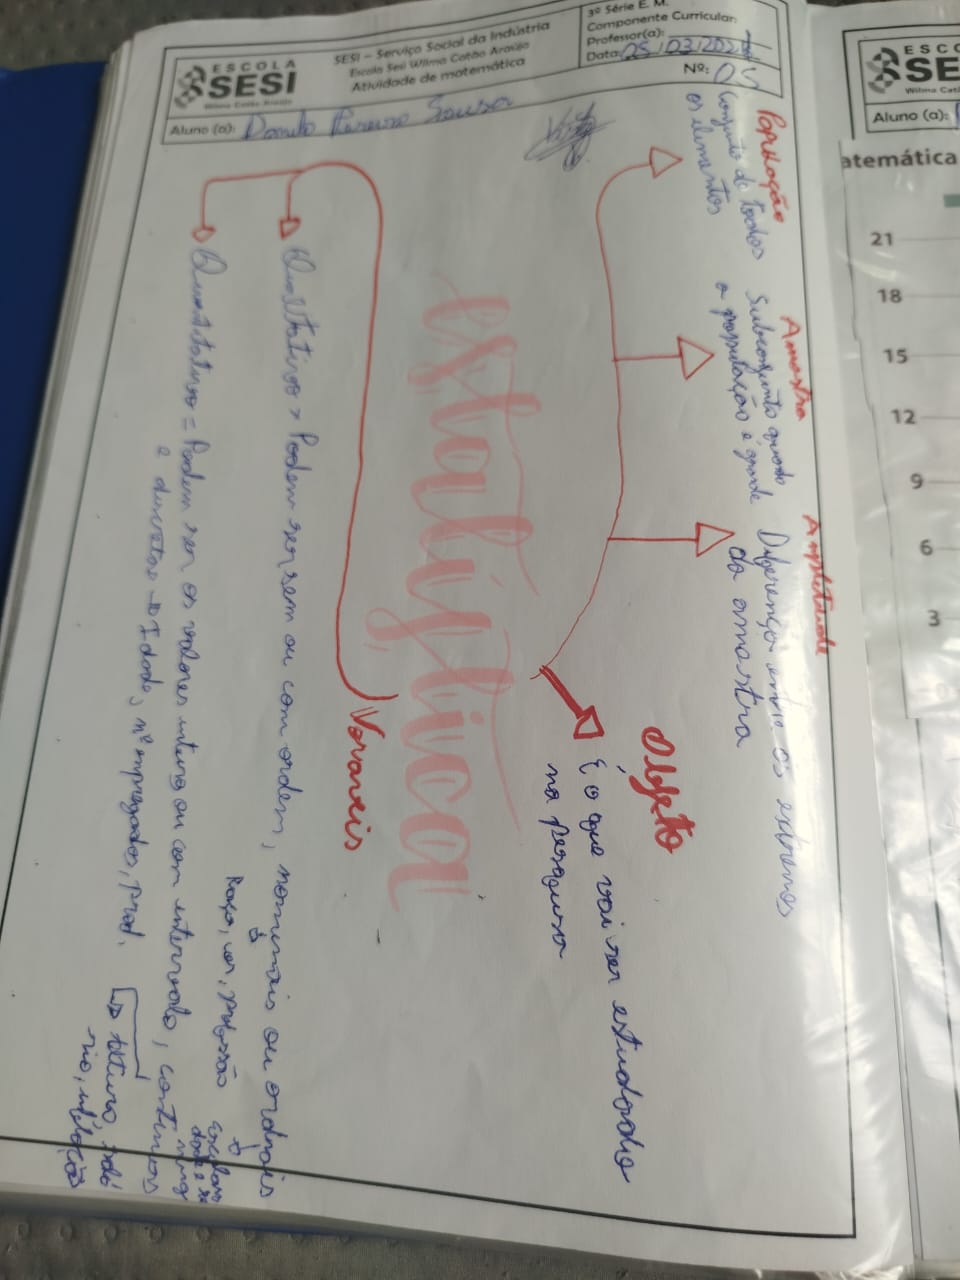 ESCOLA
SESI
Wilma Catão Araújo
SESI – Serviço Social da Indústria
Escola Sesi Wilma Catão Araújo
Atividade de matemática
3º Série E. M.
Componente Curricular:
Professor(a):
Data: 05/03/202
Nº: 05
Aluno (a): Danilo Sousa
População
Conjunto de todos
os elementos
Amostra
Subconjunto quando
a população é grande
Amplitude
Diferença entre os extremos
da amostra
Objeto
É o que vai ser estudado
na pesquisa
estatística
Variáveis
Qualitativas > Podem ser sem ou com ordem, nominais ou ordinais
Raça, cor, profissão
Quantitativas = Podem ser os valores inteiros ou com intervalo, continuas
e discretas → Idade, nº empregados, prod.
↳ altura, salá
rio, inflação
ESCO
SE
Wilma Cat
Aluno (a):
atemática
21
18
15
12
9
6
3